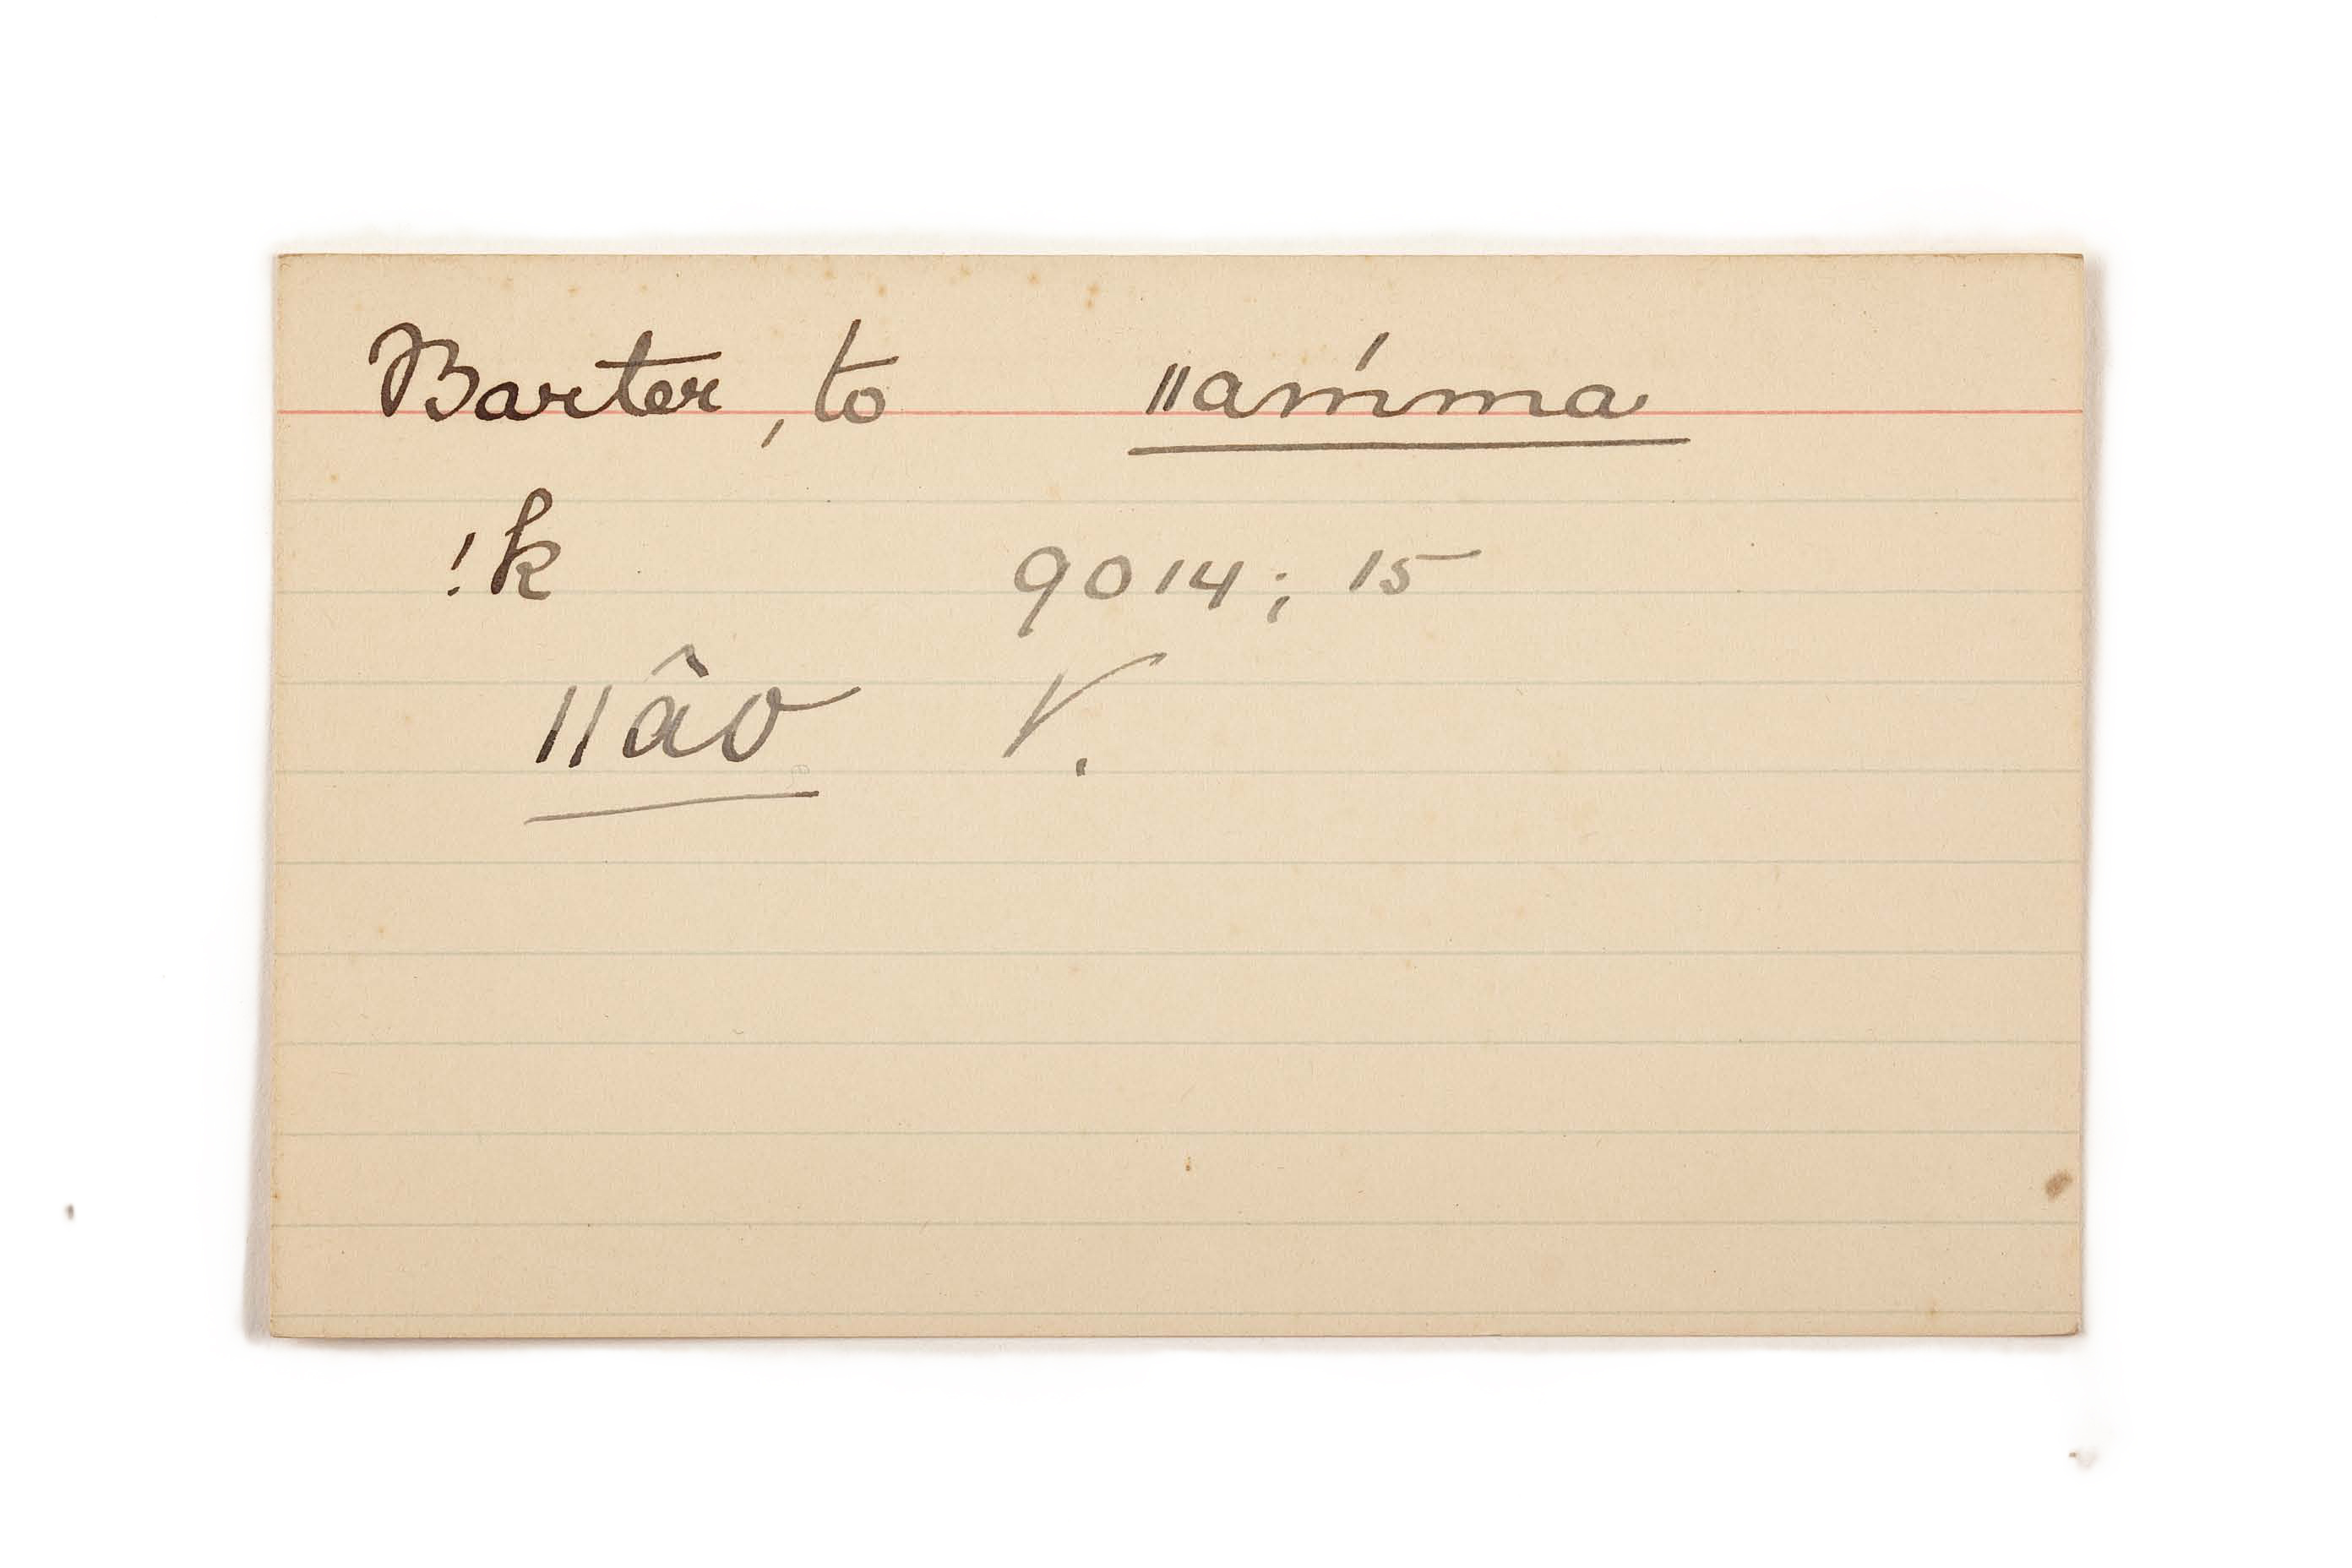 Barter, to ǁaḿma
!k 9014; 15
ǁâo V.